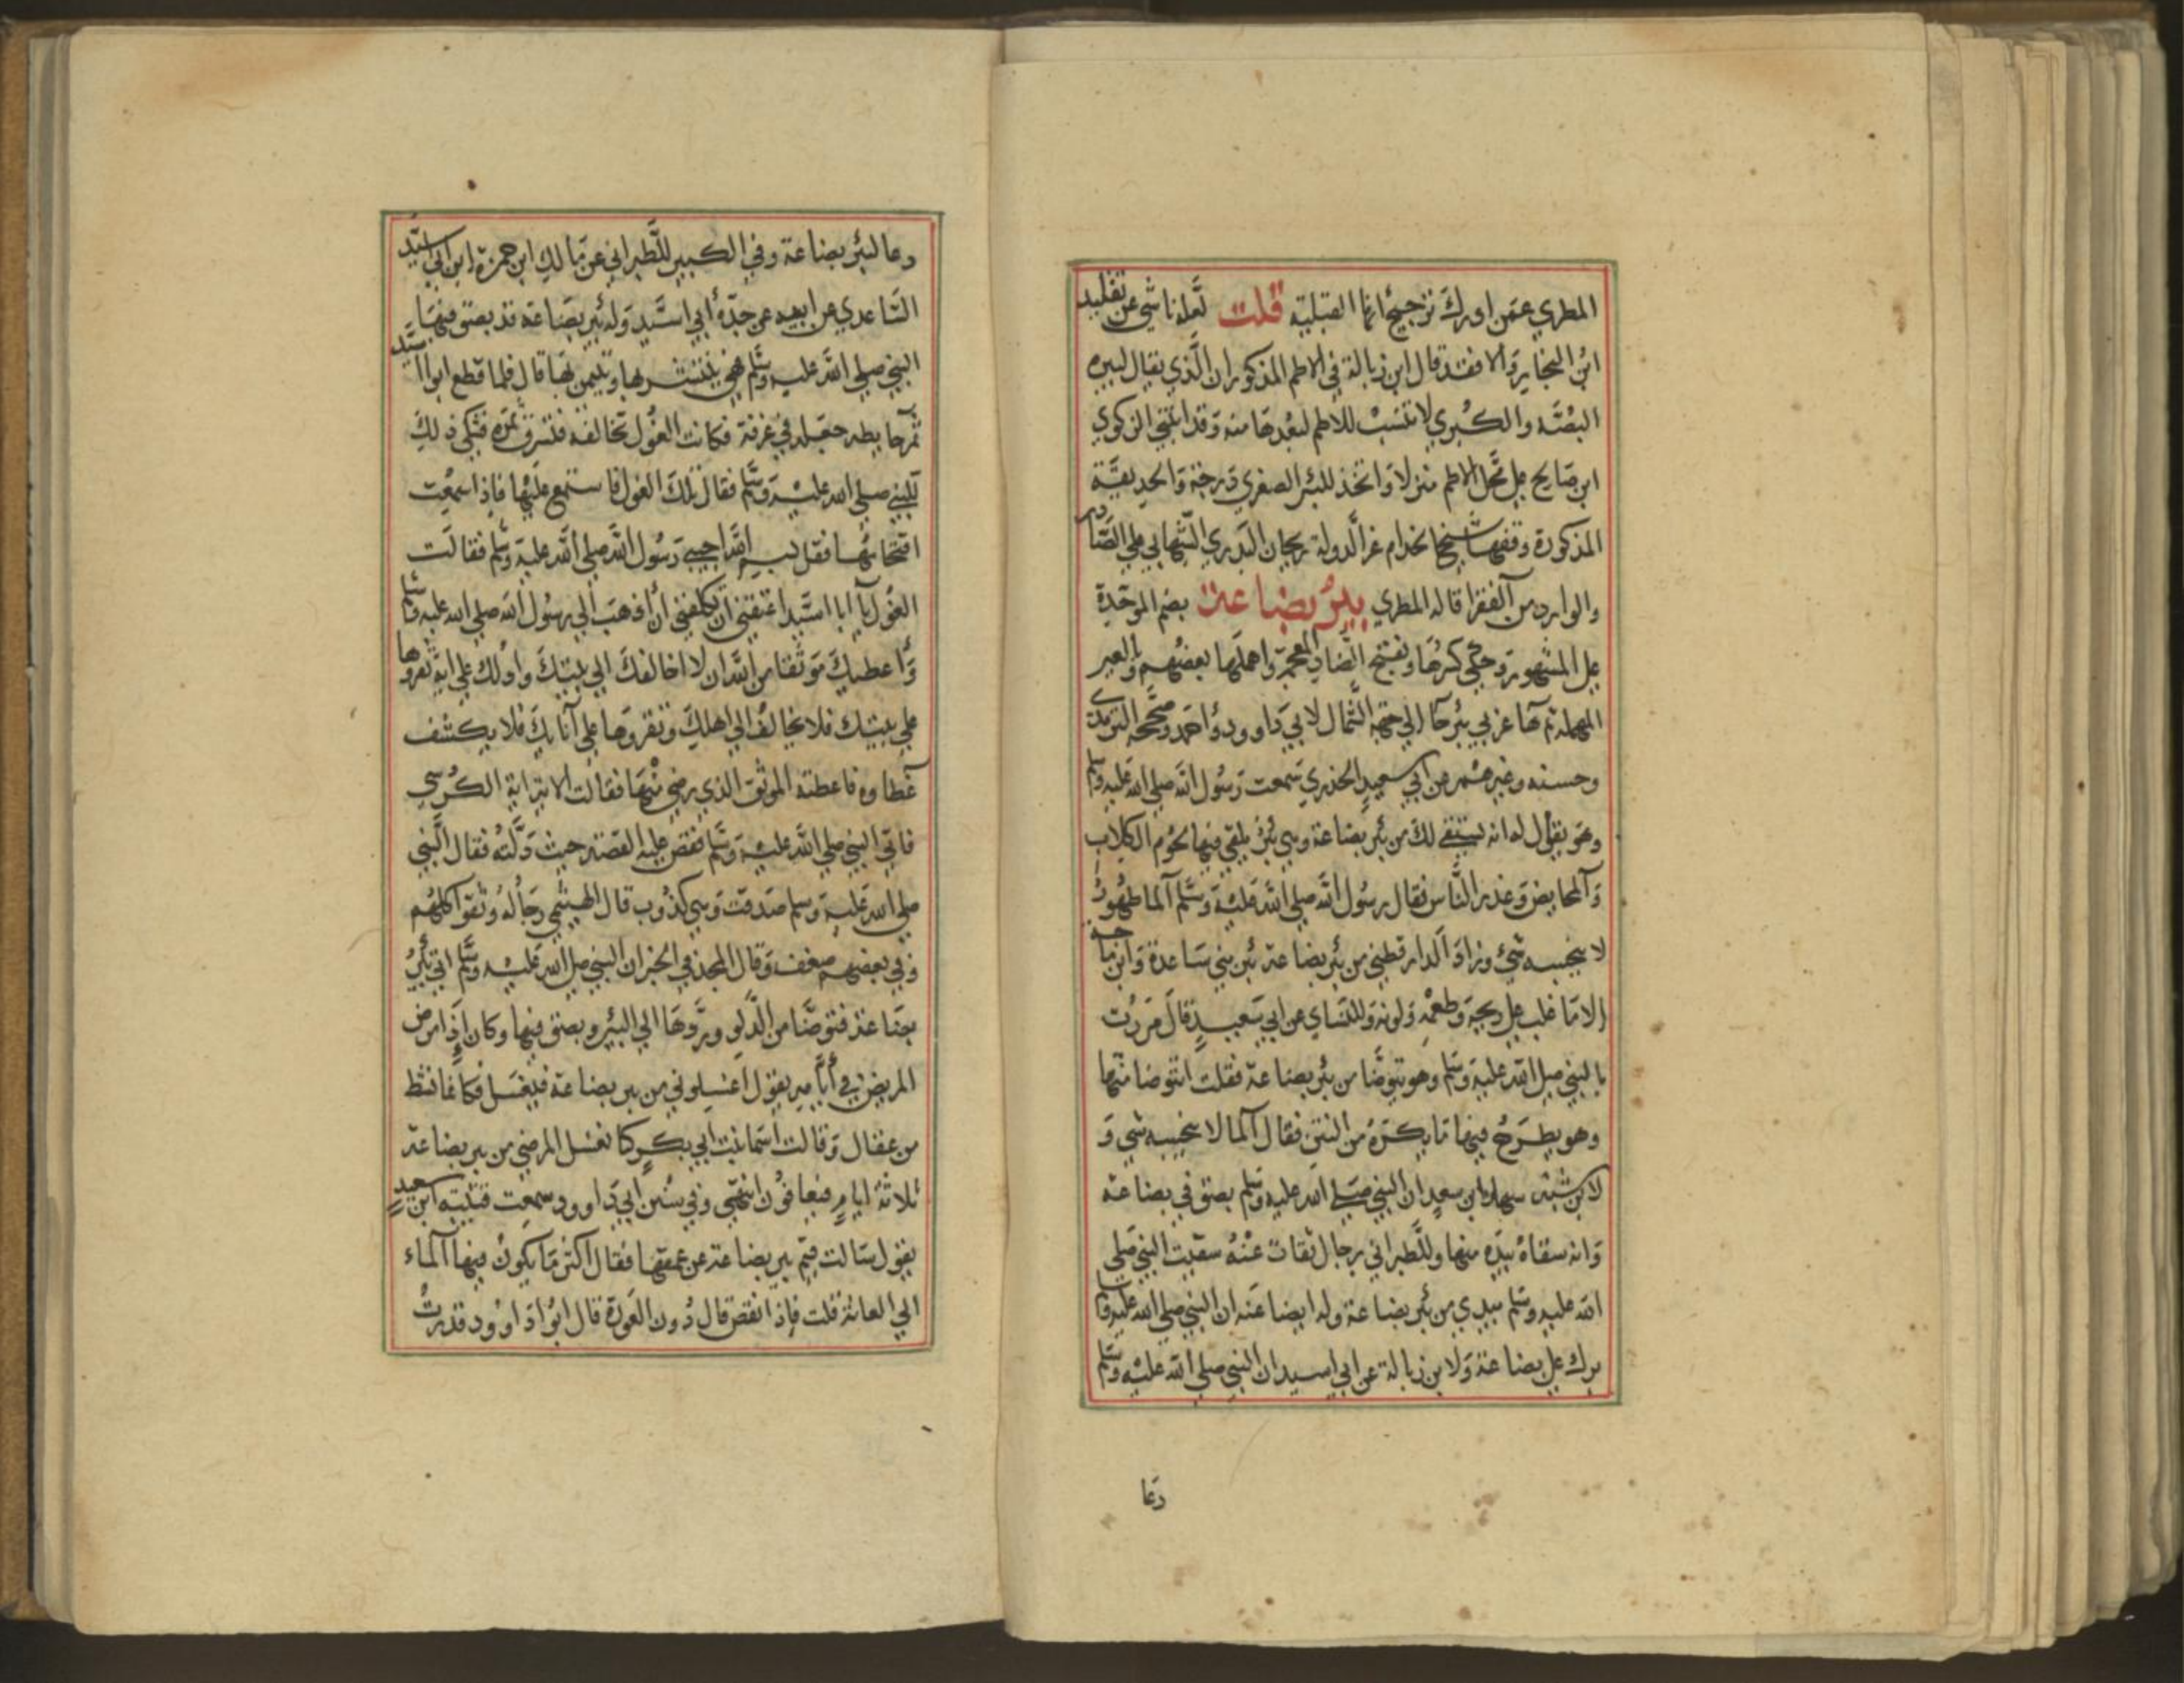 المطري عمن ادرك ترجيح انها القبلية قلت لعله ناشي عن تقليد
ابن النجار والا فقد قال ابن زبالة في الاطم المذكور ان الذي يقال لبيره
البصة والكبري لا تنسب للاطم لبعدها منه وقد ابتنى الزكوي
ابن صالح على محل الاطم منزلا واتخذ للبئر الصغري درجة والحديقة
المذكورة وقفها شيخ الخدام عز الدولة ريحان البدري الشهابي علي الصادر
والوارد من الفقرا قاله المطري بير بضاعة بضم الموحدة
على المشهور وحكي كسرها وبفتح الضاد المعجمة واهملها بعضهم والعين
المهملة ثم هاء غربي بئر حا الي جهة الشمال لابي داوود واحمد وصححه الترمذي
وحسنه وغيرهم عن ابي سعيد الخدري سمعت رسول الله صلي الله عليه وسلم
وهو يقول له انه ليستقي لك من بئر بضاعة وهي بئر يلقي فيها لحوم الكلاب
والمحايض وعذر الناس فقال رسول الله صلي الله عليه وسلم الما طهور
لا ينجسه شيء وزاد الدار قطني من بئر بضاعة بئر بني ساعدة وابن ماجه
الا ما غلب على ريحه وطعمه ولونه وللنساي عن ابي سعيد قال مررت
بالنبي صلى الله عليه وسلم وهو يتوضا من بئر بضاعة فقلت اتتوضا منها
وهو يطرح فيها ما يكره من النتن فقال الما لا ينجسه شي و
لابن شبة سهل ابن سعد ان النبي صلى الله عليه وسلم بصق في بضاعة
وانه سقاه بيده منها وللطبراني برجال ثقات عنه سقيت النبي صلى
الله عليه وسلم بيدي من بئر بضاعة وله ايضا عنه ان النبي صلي الله عليه وسلم
برك على بضاعة ولابن زبالة عن ابي اسيد ان النبي صلي الله عليه وسلم
دعا
دعا لبئر بضاعة وفي الكبير للطبراني عن مالك ابن حمزة ابن ابي اسيد
الساعدي عن ابيه عن جده أبي اسيد وله بئر بضاعة قد بصق فيها
النبي صلي الله عليه وسلم فهي يتبشر بها ويتيمن بها قال فلما قطع ابو اسيد
ثمر حايطه جعله في غرفة فكانت الغول تخالفه فتسرق ثمره فشكي ذلك
للنبي صلي الله عليه وسلم فقال تلك الغول فاستمع عليها فاذا سمعت
اقتحامها فقل بسم الله اجيبي رسول الله صلي الله عليه وسلم فقالت
الغول يا ابا اسيد اعفني ان تكلفني أن اذهب الي رسول الله صلي الله عليه وسلم
واعطيك موثقا من الله ان لا اخالفك الي بيتك وادلك علي اية تقروها
علي بيتك فلا يخالف الي اهلك وتقروها علي آنائك فلا يكشف
غطاوه فاعطته الموثق الذي رضي منها فقالت الاية اية الكرسي
فاتي النبي صلي الله عليه وسلم فقص عليه القصة حيث ولت فقال النبي
صلي الله عليه وسلم صدقت وهي كذوب قال الهيثمي رجاله وثقوا كلهم
وفي بعضهم ضعف وقال المجد في الخبر ان النبي صلى الله عليه وسلم اتي بئر
بضاعة فتوضا من الدلو وردها الي البئر وبصق فيها وكان إذا مرض
المريض في أيامه يقول اغسلوني من بير بضاعة فيغسل فكانما نشط
من عقال وقالت اسما بنت ابي بكر كنا نغسل المرضي من بير بضاعة
ثلاثة ايام فيعافون انتهي وفي سنن ابي داوود سمعت قتيبة ابن سعيد
يقول سالت قيم بير بضاعة عن عمقها فقال اكثر ما يكون فيها الماء
الي العانة قلت فإذا نقص قال دون العورة قال ابو داوود قدرت